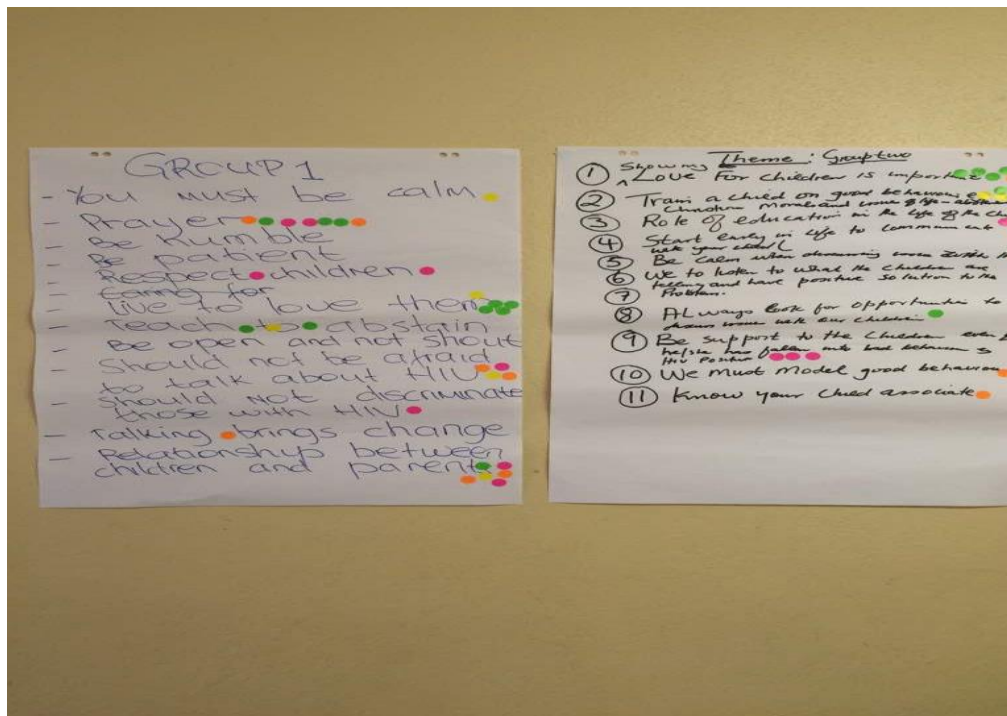 GROUP 1
- You must be calm
- Prayer
- Be humble
- Be patient
- Respect children
- caring for
- Live to love them
- Teach to abstain
- Be open and not shout
- Should not be afraid
to talk about HIV
- should not discriminate
those with HIV
- Talking brings change
- Relationship between
children and parent
Theme: Group two
① Showing
Love For children is important
② Train a child on good behaviour
Christian moral and issue of life
③ Role of education in the life of the
④ Start early in life to communicate
with your child
⑤ Be calm when discussing issues
⑥ We to listen to what the children are
telling and have positive solution to the
⑦ Problem.
⑧ ALways look for opportunities to
issues with our children
⑨ Be support to the children even
he/she has fallen into bad behaviour
HIV Positive
⑩ We Must Model good behaviour
⑪ Know your child associate